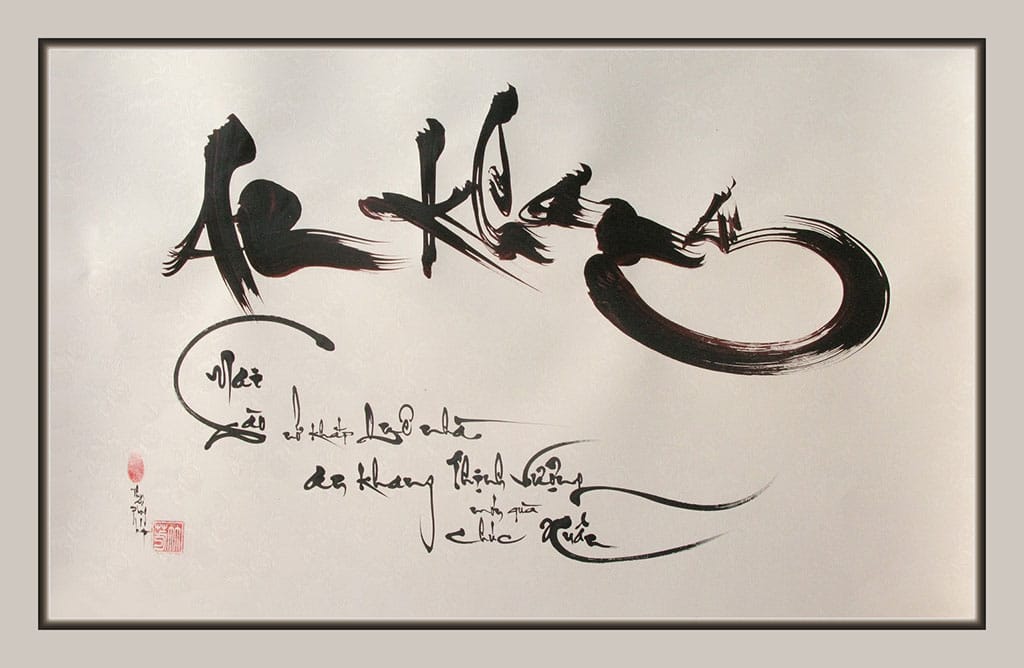 An Khang
Mai
Đào nở khắp nhà
an khang Thịnh Vượng
món quà
chúc Xuân